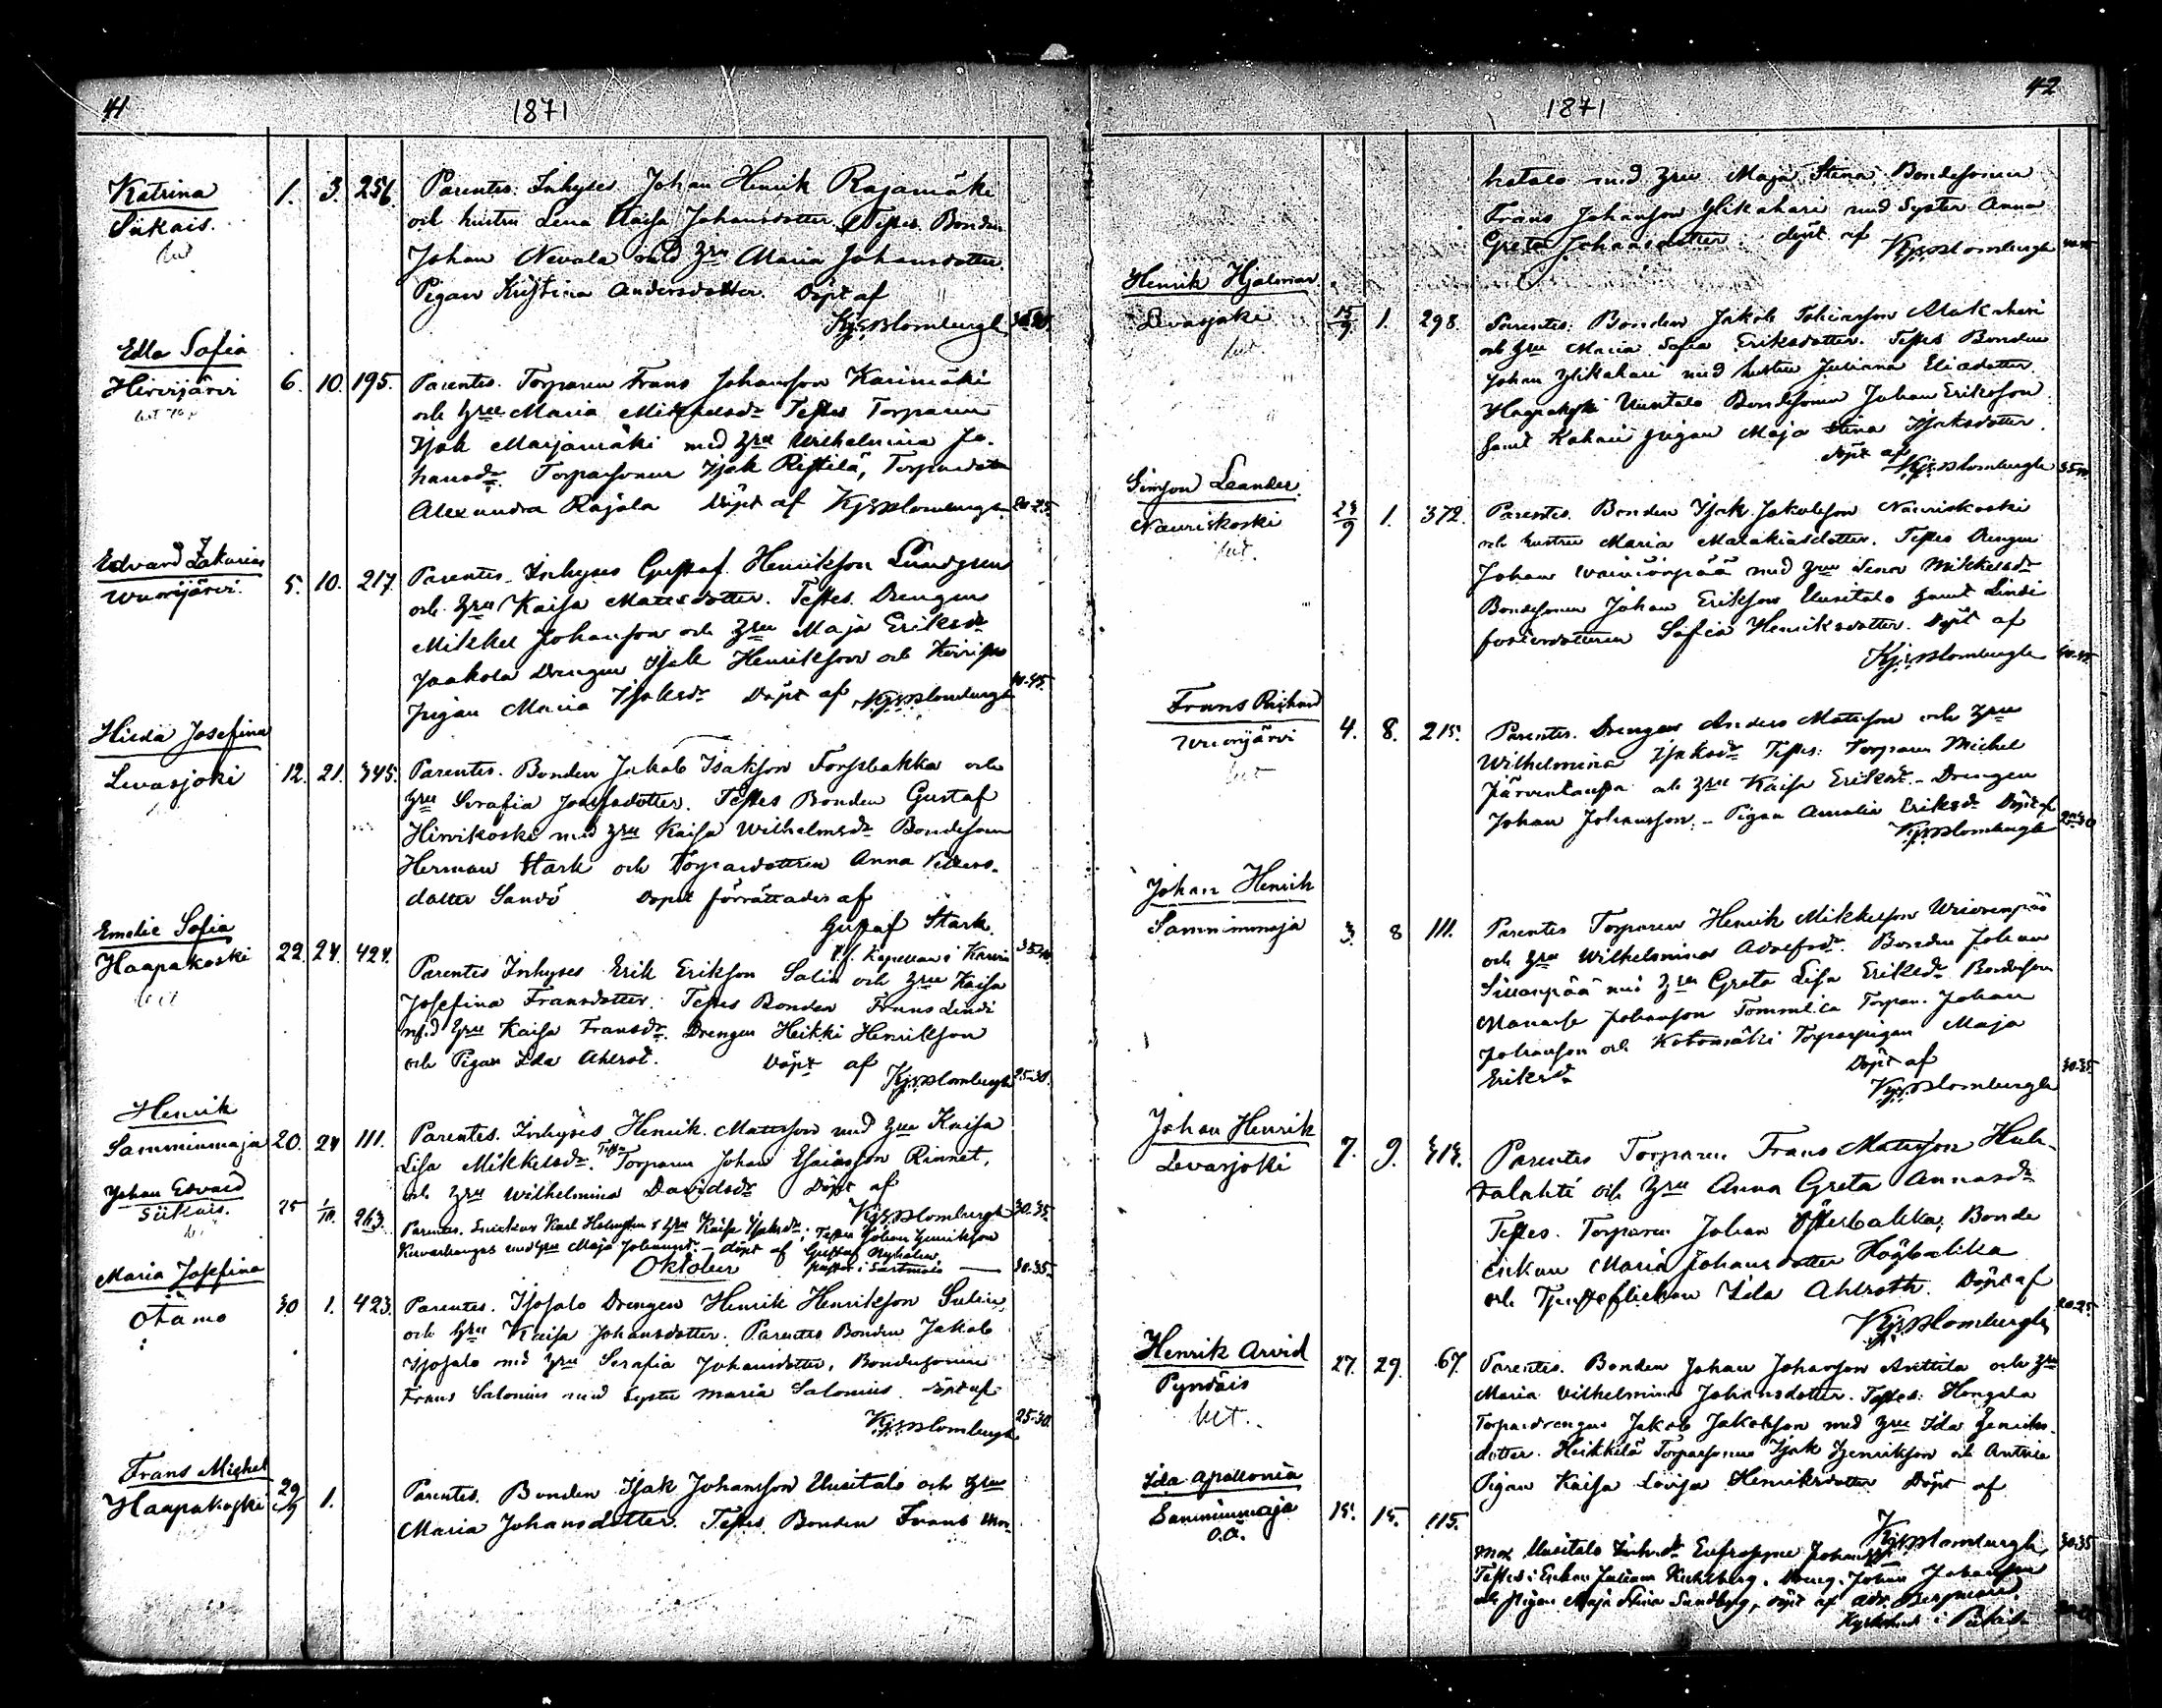 41
1871
Katrina
Siikais.
1. 3. 256.
Parentes: Inhyses Johan Henrik Rajamäki
och hustru Lena Kaisa Johansdotter. Testes Bonden
Johan Nevala med Hru Maria Johansdotter.
Pigan Kristina Andersdotter. Döpt af
Kjs Blombergh
Edla Sofia
Hirvijärvi
6. 10. 195.
Parentes. Torparen Frans Johansson Karimäki
och Hru Maria Mikkelsdr Testes Torparen
Isak Marjamäki med Hru Wilhelmina Jo-
hansdr. Torparsonen Isak Ristilä, Torpardotn
Alexandra Rajala Döpt af Kjs Blombergh 20-25
Edvard Zakarias
Wuorijärvi.
5. 10. 217.
Parentes. Inhyses Gustaf Henriksson Lundgren
och Hru Kaisa Mattsdotter. Testes. Drengen
Mikkel Johansson och Hru Maja Eriksdr
Jaakola Drengen Isak Henriksson och
pigan Maria Isaksdr Döpt af Kjs Blombergh 40-45.
Hilda Josefina
Levasjoki
12. 21. 345.
Parentes. Bonden Jakob Isaksson Forsbakka och
Hru Serafia Josefsdotter. Testes Bonden Gustaf
Hirvikoski med Hru Kaisa Wilhelmsdr Bondesonen
Herman Stark och Torpardottren Anna
dotter Sandö Dopet förrättades af
Gustaf Stark.
Kapellan i Karvia
Emelie Sofia
Haapakoski
22. 24. 424.
Parentes Inhyses Erik Eriksson Salin och Hru Kaisa
Josefina Fransdotter. Testes Bonden Frans Lindi
med Hru Kaisa Fransdr. Drengen Heikki Henriksson
och Pigan Ida Ahlrot. Döpt af
Kjs Blombergh 25-30.
Henrik
Samminmaja
20. 24 111.
Parentes. Inhyses Henrik Mattsson med Hru Kaisa
Lisa Mikkelsdr. Testes Torparen Johan Esaiasson Rinnet,
och Hru Wilhelmina Davidsdr Döpt af
Kjs Blombergh 30-35.
Johan Edvard
Siikais.
25 1/10. 263.
Parentes. Snickar Karl Holmsten o Hru Kaisa Isaksdr; Testes Johan Henriksson
med Hru Maja Johansdr. – döpt af Gustaf Nyholm
pastor i Sastmola 30-35.
Oktober
Maria Josefina
Otamo
30 1. 423.
Parentes. Isosalo Drengen Henrik Henriksson
och Hru Kaisa Johansdotter. Parentes Bonden Jakob
Isosalo med Hru Serafia Johansdotter, Bondesonen
Frans Salonius med syster Maria Salonius. Döpt af
Kjs Blombergh 25-30.
Frans Mickel
Haapakoski
29/9 1.
Parentes. Bonden Isak Johansson Uusitalo och Hru
Maria Johansdotter. Testes Bonden Frans
42
1871
hatalo med Hru Maja Stina, Bondesonen
Frans Johansson Ylikahari med Syster Anna
Greta Johansdotter. döpt af Kjs Blombergh
Henrik Hjalmar
Levasjoki
15/9 1. 298.
Parentes: Bonden Jakob Johansson Alakahari
och Hru Maria Sofia Eriksdotter. Testes Bonden
Johan Ylikahari med hustru Juliana Eliedotter.
Haapakoski Uusitalo Bondesonen Johan Eriksson
samt Kahari pigan Maja Stina Isaksdotter.
Döpt af
Kjs Blombergh 35-40
Simson Leander.
Nauriskoski
23/9 1. 372.
Parentes. Bonden Isak Jakobsson Nauriskoski
och hustru Maria Malakiasdotter. Testes Drengen
Johan med Hru Lena Mikkelsdr
Bondesonen Johan Eriksson Uusitalo samt Lindi
fosterdottren Sofia Henriksdotter. Döpt af
Kjs Blombergh 40-45.
Frans Richard
Wuorijärvi
4. 8. 215.
Parentes. Drengen Anders Mattsson och Hru
Wilhelmina Isaksdr Testes: Torparen Michel
Järventausta och Hru Kaisa Eriksdr. – Drengen
Johan Johansson. – Pigan Amalia Eriksdr Döpt af
Kjs Blombergh 25-30
Johan Henrik
Samminmaja
3. 8 111.
Parentes Torparen Henrik Mikkelsson Wuorenpää
och Hru Wilhelmina Adolfsdr. Bonden Johan
Sillanpää med Hru Greta Lisa Eriksdr Bondeson
Manasse Johansson Tommila Torpar. Johan
Johansson och Kotomäki Torparpigan Maja
Eriksdr Döpt af
Kjs Blombergh 30-35.
Johan Henrik
Levasjoki
7. 9. 314.
Parentes Torparen Frans Mattsson Huh-
talahti och Hru Anna Greta Annasdr
Testes. Torparen Johan Österbakka, Bonde
enkan Maria Johansdotter Högbakka
och Tjensteflickan Ida Ahlroth. Döpt af
Kjs Blombergh 20-25
Henrik Arvid
Pyndöis
27. 29. 67.
Parentes. Bonden Johan Johansson Anttila och Hru
Maria Vilhelmina Johansdotter. Testes: Hongala
Torpardrengen Jakob Jakobsson med Hru Ida Henriks-
dotter. Heikkilä Torparsonen Isak Henriksson och Anttila
Pigan Kaisa Lovisa Henriksdotter Döpt af
Kjs Blombergh 30-35
Ida Apollonia
Samminmaja
o.ä.
15. 15. 115.
Mor Uusitalo Inh.dr Eufrosyne Johansdr
Testes: Enkan Juliana Kuhlberg, Dreng. Johan Johansson
och Pigan Maja Stina Sundberg, döpt af